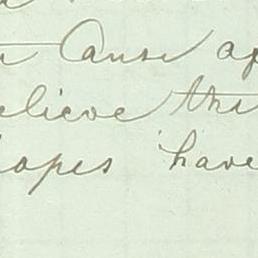 Cause of
elieve the
opes have